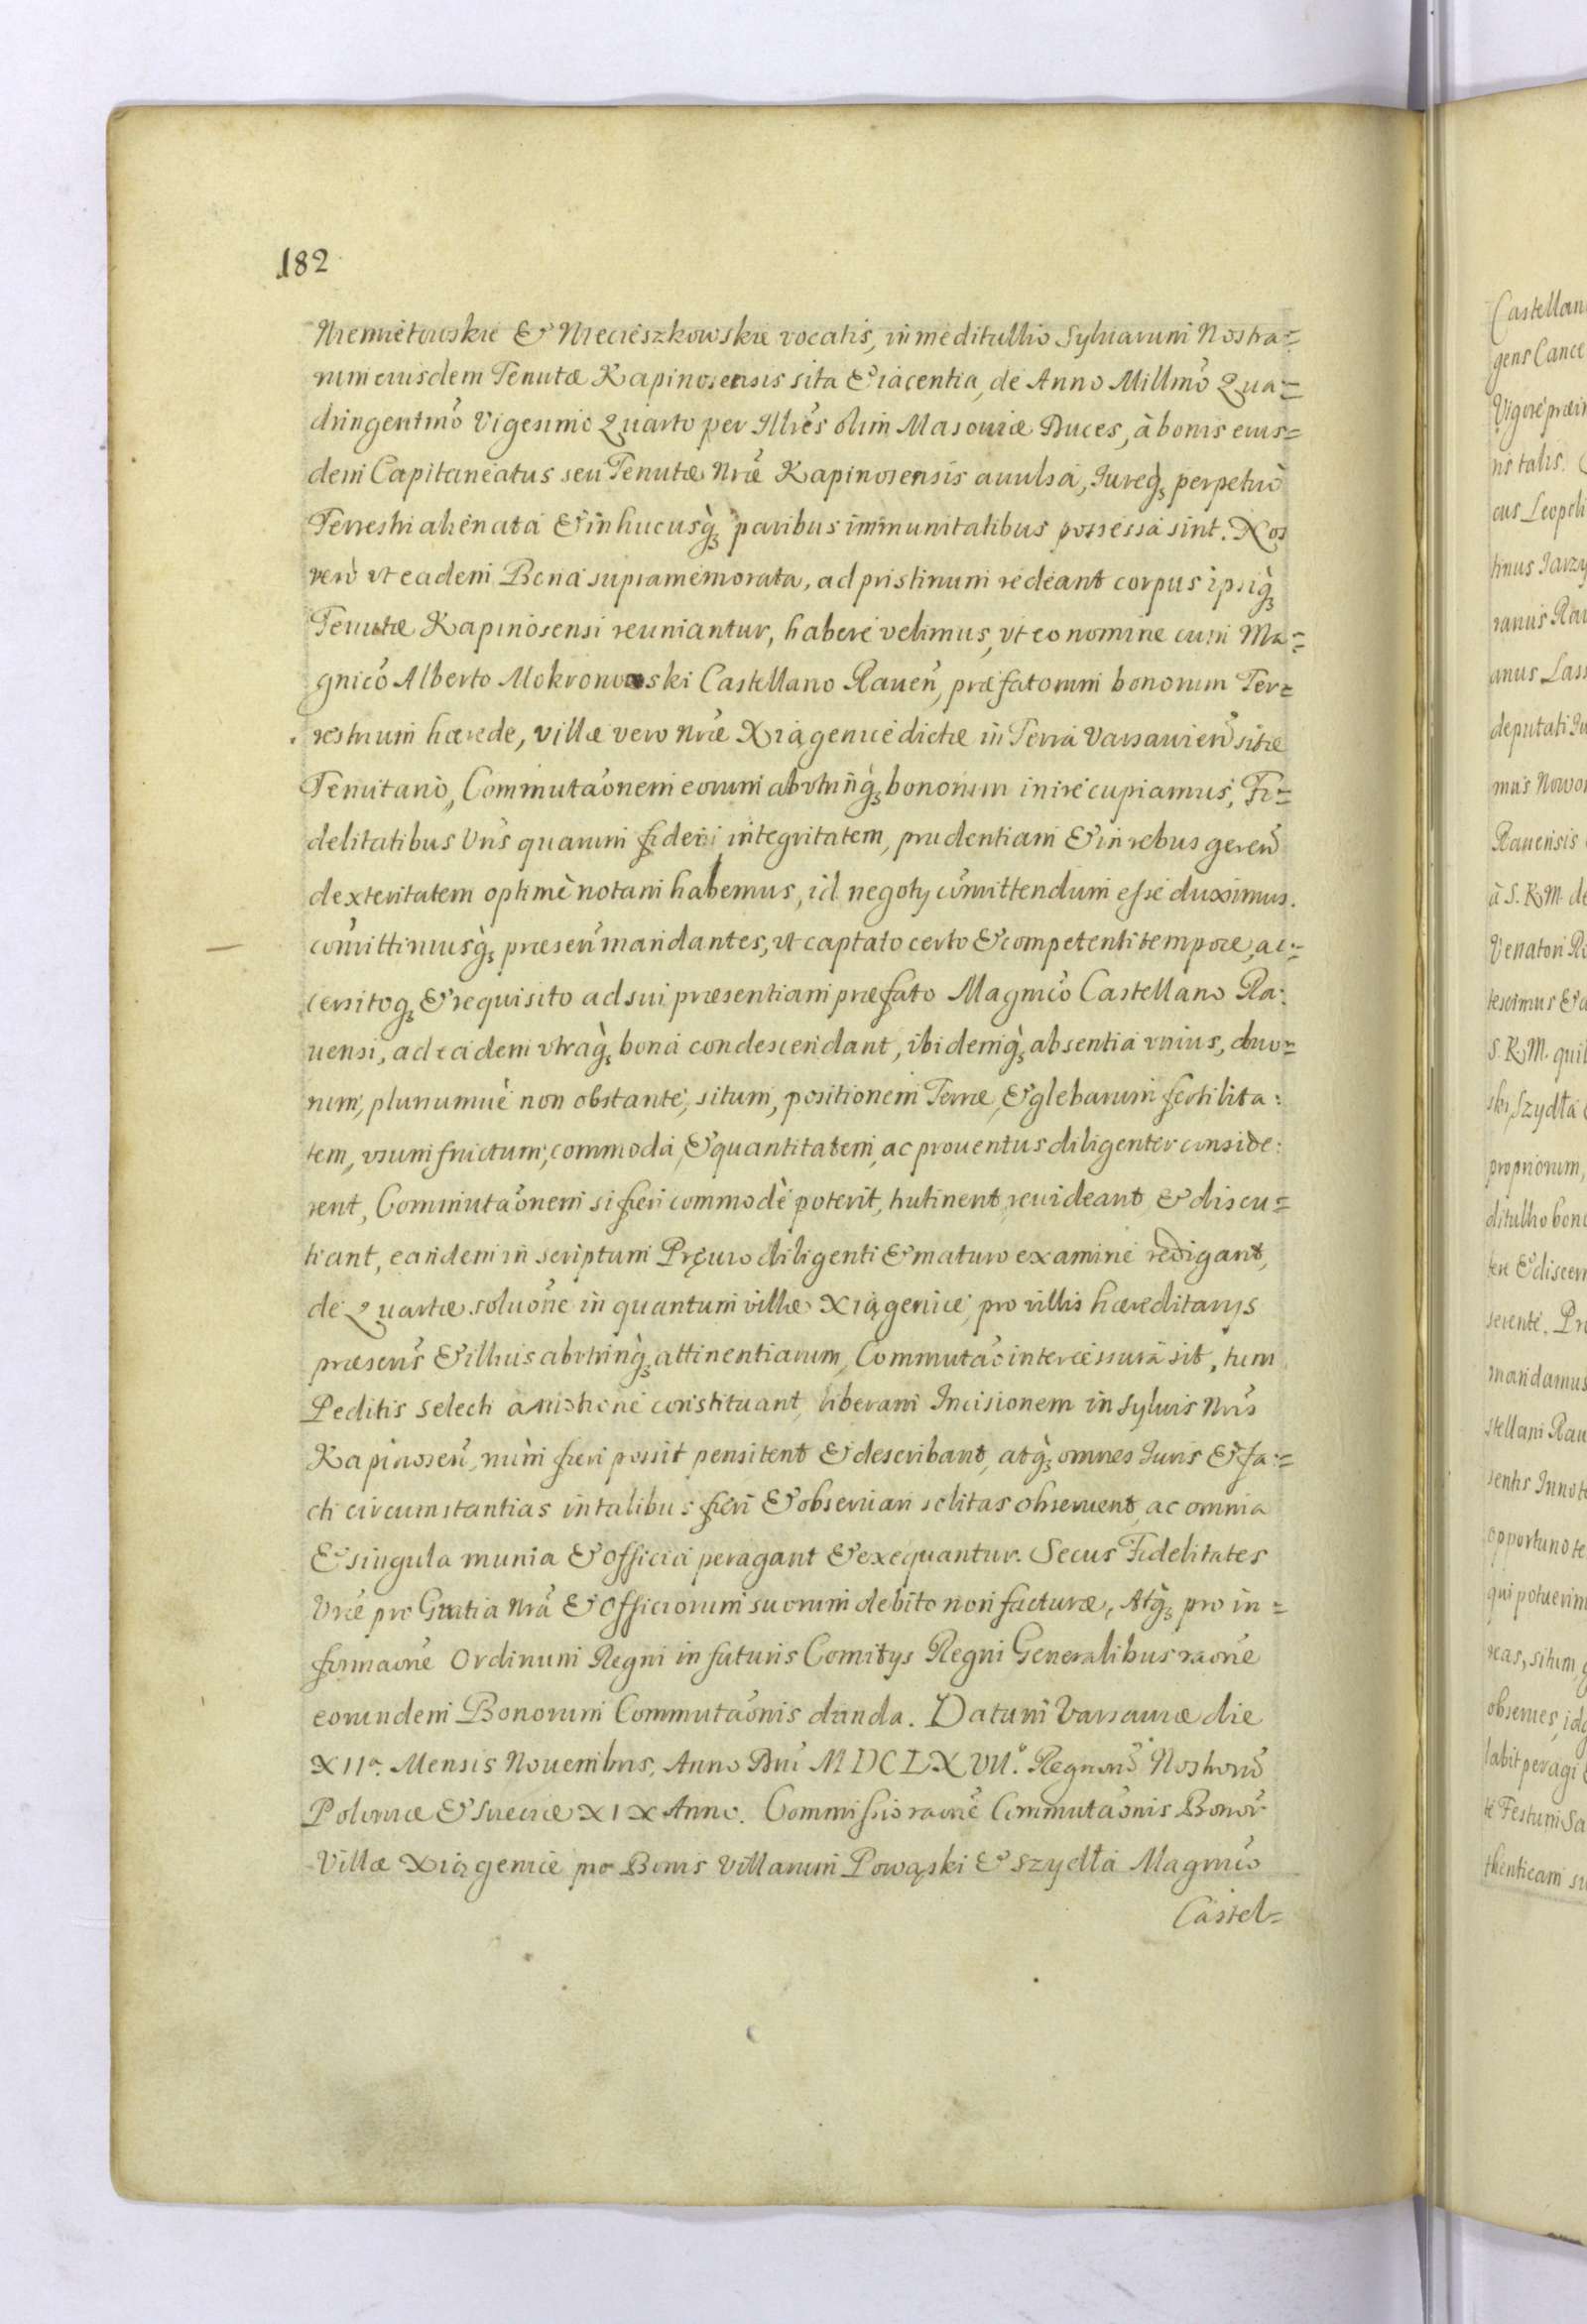 182
Niemietowskie & Niecieszkowskie vocatis, in meditullio Sylvarum Nostra=
rum eiusdem Tenutæ Kapinosensis sita & iacentia, de Anno Millmo Qua=
dringentmo Vigesimo Quarto per Illres olim Masoviæ Duces, à bonis eius=
dem Capitaneatus seu Tenutæ Nræ Kapinosensis avulsa, Iureq; perpetuò
Terrestri alienata & in hucusq; paribus immunitatibus possessa sint. Nos
verò vt eadem Bona supramemorata, ad pristinum redeant corpus ipsiq;
Tenutæ Kapinosensi reuniantur, habere velimus, vt eo nomine cum Ma=
gnico Alberto Mokronowski Castellano Raven, præfatorum bonorum Ter=
restrium hærede, villæ vero Nræ Xiągenice dictæ in Terra Varsavien sitæ
Tenutario, Commutaonem eorum abvtrinq; bonorum inire cupiamus, Fi=
delitatibus Vris quarum fidem integritatem, prudentiam & in rebus geren
dexteritatem optimè notam habemus, id negoty comittendum esse duximus.
comittimusq; præsen mandantes, vt captato certo & competenti tempore, ac=
cersitoq; & requisito ad sui præsentiam præfato Magnico Castellano Ra:
vensi, ad eadem vtraq; bona condescendant, ibidemq; absentia vnius, duo=
rum, pluriumvè non obstante, situm, positionem Terræ, & glebarum fertilita:
tem, vsumfructum, commoda, & quantitatem, ac proventus diligenter conside:
rent, Commutaonem si fieri commodè poterit, trutinent, revideant & discu=
tiant, eandem in scriptum Prævio diligenti & maturo examine redigant,
de Quartæ soluone in quantum villæ Xiągenice, pro villis hæreditarys
præsens & illius abvtrinq; attinentiarum, Commutao intercessura sit, tum
Peditis selecti constituant, liberam Incisionem in Sylvis Nris
Kapinosen, num fieri possit pensitent & describant, atq; omnes Iuris & fa=
cti circumstantias in talibus fieri & observari solitas observent, ac omnia
& singula munia & officia peragant & exequantur. Secus Fidelitates
Vræ pro Gratia Nra & Officiorum suorum debito non facturæ, Atq; pro in=
formaone Ordinum Regni in futuris Comitys Regni Generalibus raone
eorundem Bonorum Commutaonis danda. Datum Varsaviæ die
XIIa. Mensis Novembris, Anno Dni MDCLXVIIo. Regnoru Nostroru
Poloniæ & Sueciæ XIX Anno. Commissio raone Commutaonis Bonor
Villæ Xiągenice pro Bonis Villarum Powąski & Szydła Magnico
Castel=